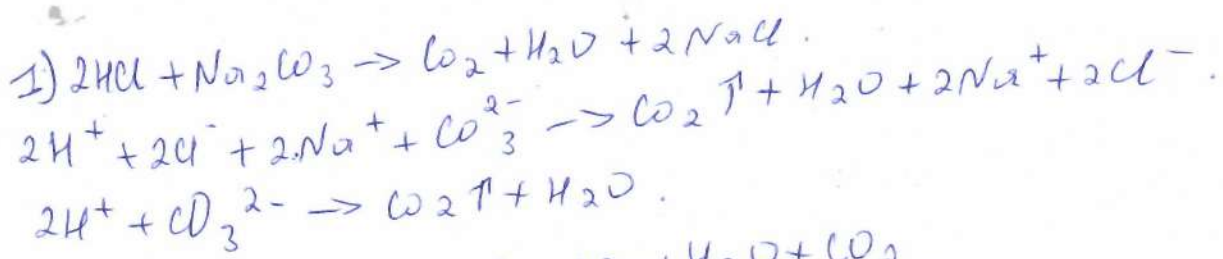 1) 2HCl + Na₂CO₃ → CO₂ + H₂O + 2NaCl.
2H⁺ + 2Cl⁻ + 2Na⁺ + CO₃²⁻ → CO₂↑ + H₂O + 2Na⁺ + 2Cl⁻.
2H⁺ + CO₃²⁻ → CO₂↑ + H₂O.
+ H₂O + CO₂